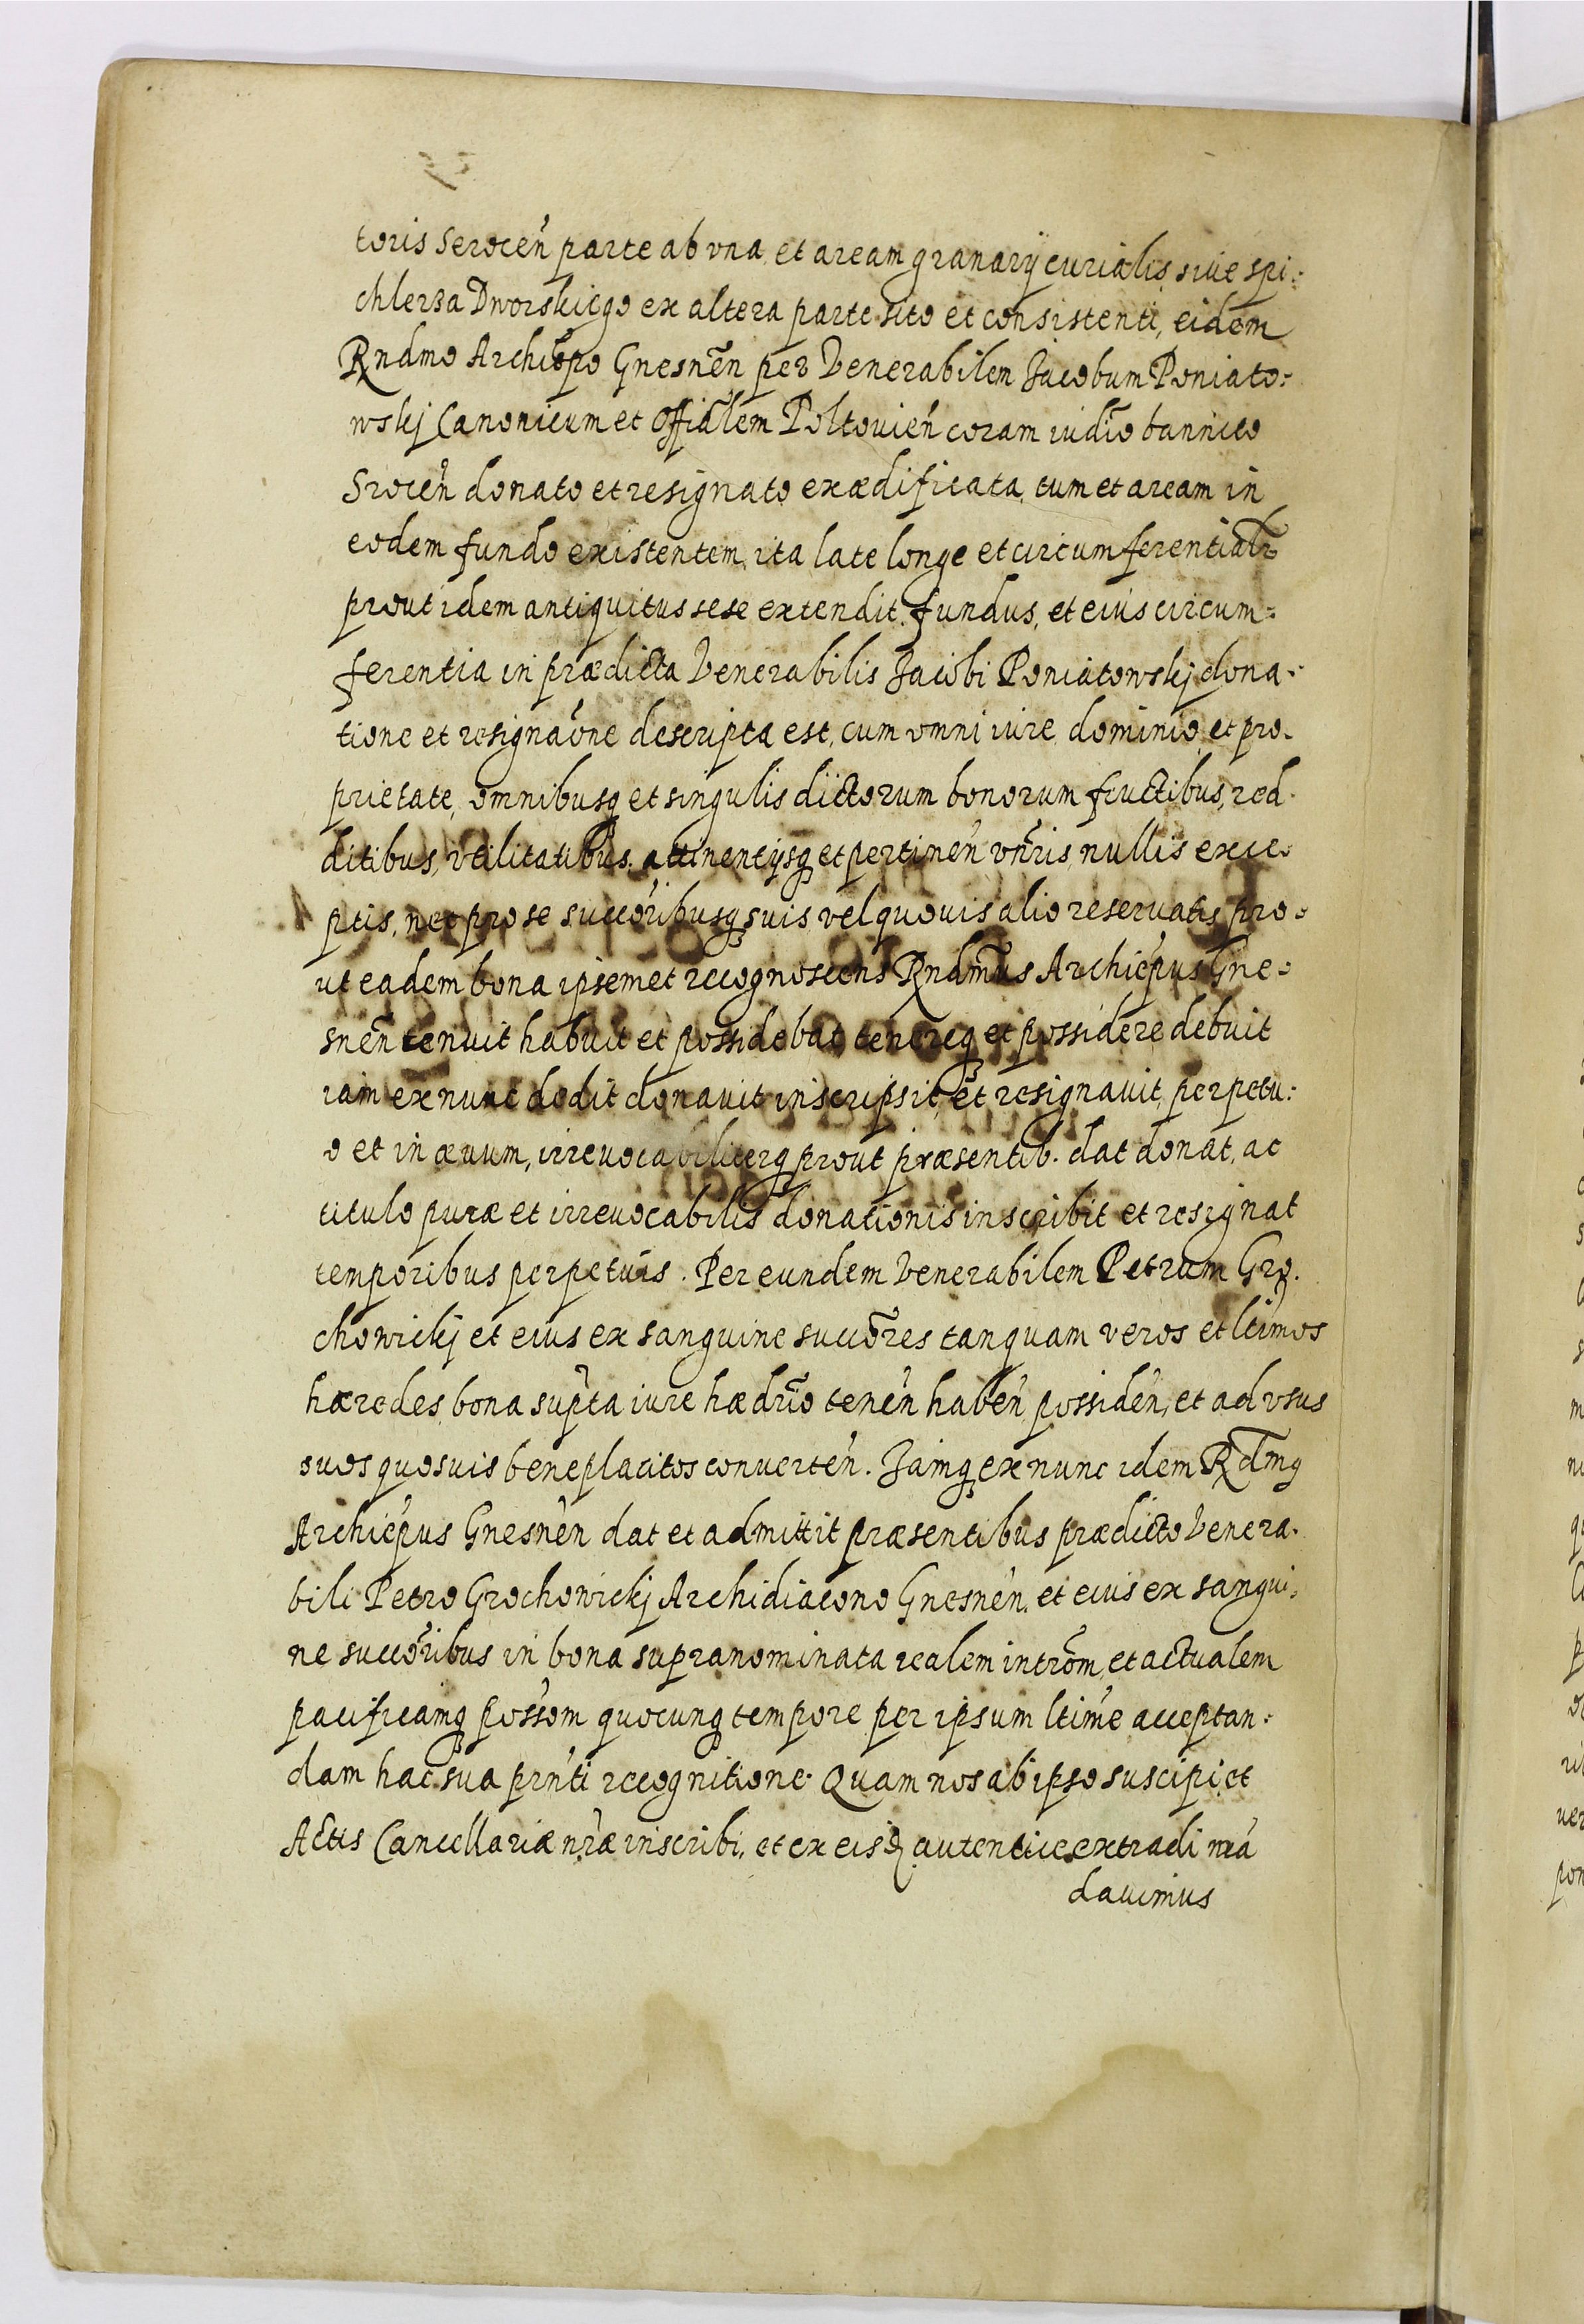 toris Serocen̄ parte ab vna, et aream granarÿ curialis, siue spi:
chlerza Dworskiego ex altera parte sito et consistenti, eidem
Rndmo Archiēpo Gnesnēn per Venerabilem Jacobum Poniato:
wskj Canonicum et Offiālem Poltouien̄ coram iudīo bannito
Srocen̄ donato et resignato exædificata, tum et aream in
eodem fundo existentem, ita late longe et circumferentialr̄
prout idem antiquitus sese extendit fundus, et eius circum:
ferentia in prædicta Venerabilis Jacobi Poniatowskj dona:
tione et resignaōne descripta est, cum omni iure, dominio, et pro.
prietate, omnibusq et singulis dictorum bonorum fructibus, red.
ditibus, vtilitatibus, attinentÿsq et pertinen̄ vn̄ris, nullis exce.
ptis, nec pro se succōribusq suis vel quouis alio reseruatis, pro:
ut eadem bona ipsemet recognoscens Rndmūs Archiēpus Gne:
snēn tenuit habuit et possidebat, tenereq et possidere debuit
iam ex nunc dedit donauit inscripsit, et resignauit, perpetu:
o et in æuum, irreuocabiliterq prout præsentib. dat donat, ac
titulo puræ et irreuocabilis donationis inscribit et resignat
temporibus perpetuis. Per eundem Venerabilem Petrum Gro.
chowickj et eius ex sanguine succōres tanquam veros et ltimos
hæredes, bona sup̄ta iure hædrīo tenen̄ haben̄ possiden̄, et ad vsus
suos quosuis beneplacitos conuerten̄. Jamq ex nunc idem Rdm̄q
Archiēpus Gnesnēn dat et admittit præsentibus prædicto Venera.
bili Petro Grochowickj Archidiacono Gnesnēn, et eius ex sangui:
ne succōribus in bona supranominata realem intrōm, et actualem
pacificamq possōm quocunq tempore per ipsum ltime acceptan:
dam hac sua prn̄ti recognitione. Quam nos ab ipso suscipi, et
Actis Cancellariæ nr̄æ inscribi, et ex eisd autentice extradi mā
dauimus